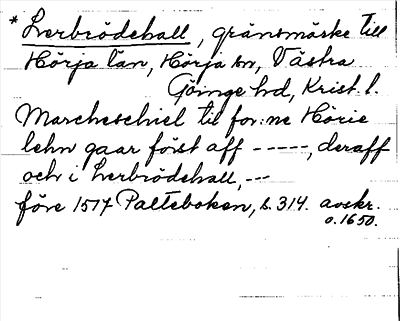 * Lverbrödehall, gränsmärke till
Hörja län, Hörja sn, Västra
Göinge hd, Krist. l.
Marcheschiel til for:ne Hörie
lehn gaar först aff -----, deraff
och i Lverbrödehall, ---
före 1517 Palteboken, s. 314. avskr.
o. 1650.